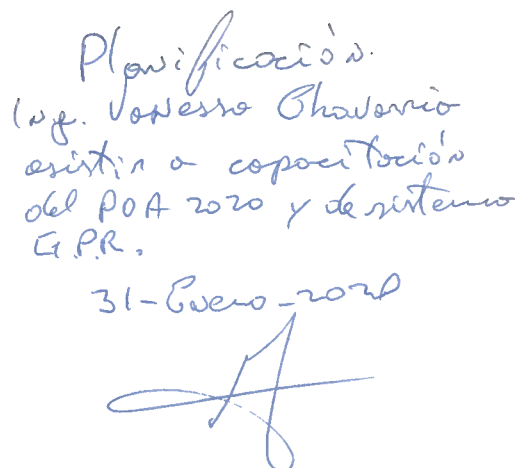 Planificación.
Ing. Vanessa Chavarria
asistir a capacitación
del POA 2020 y de sistema
G.P.R.
31-Enero-2020